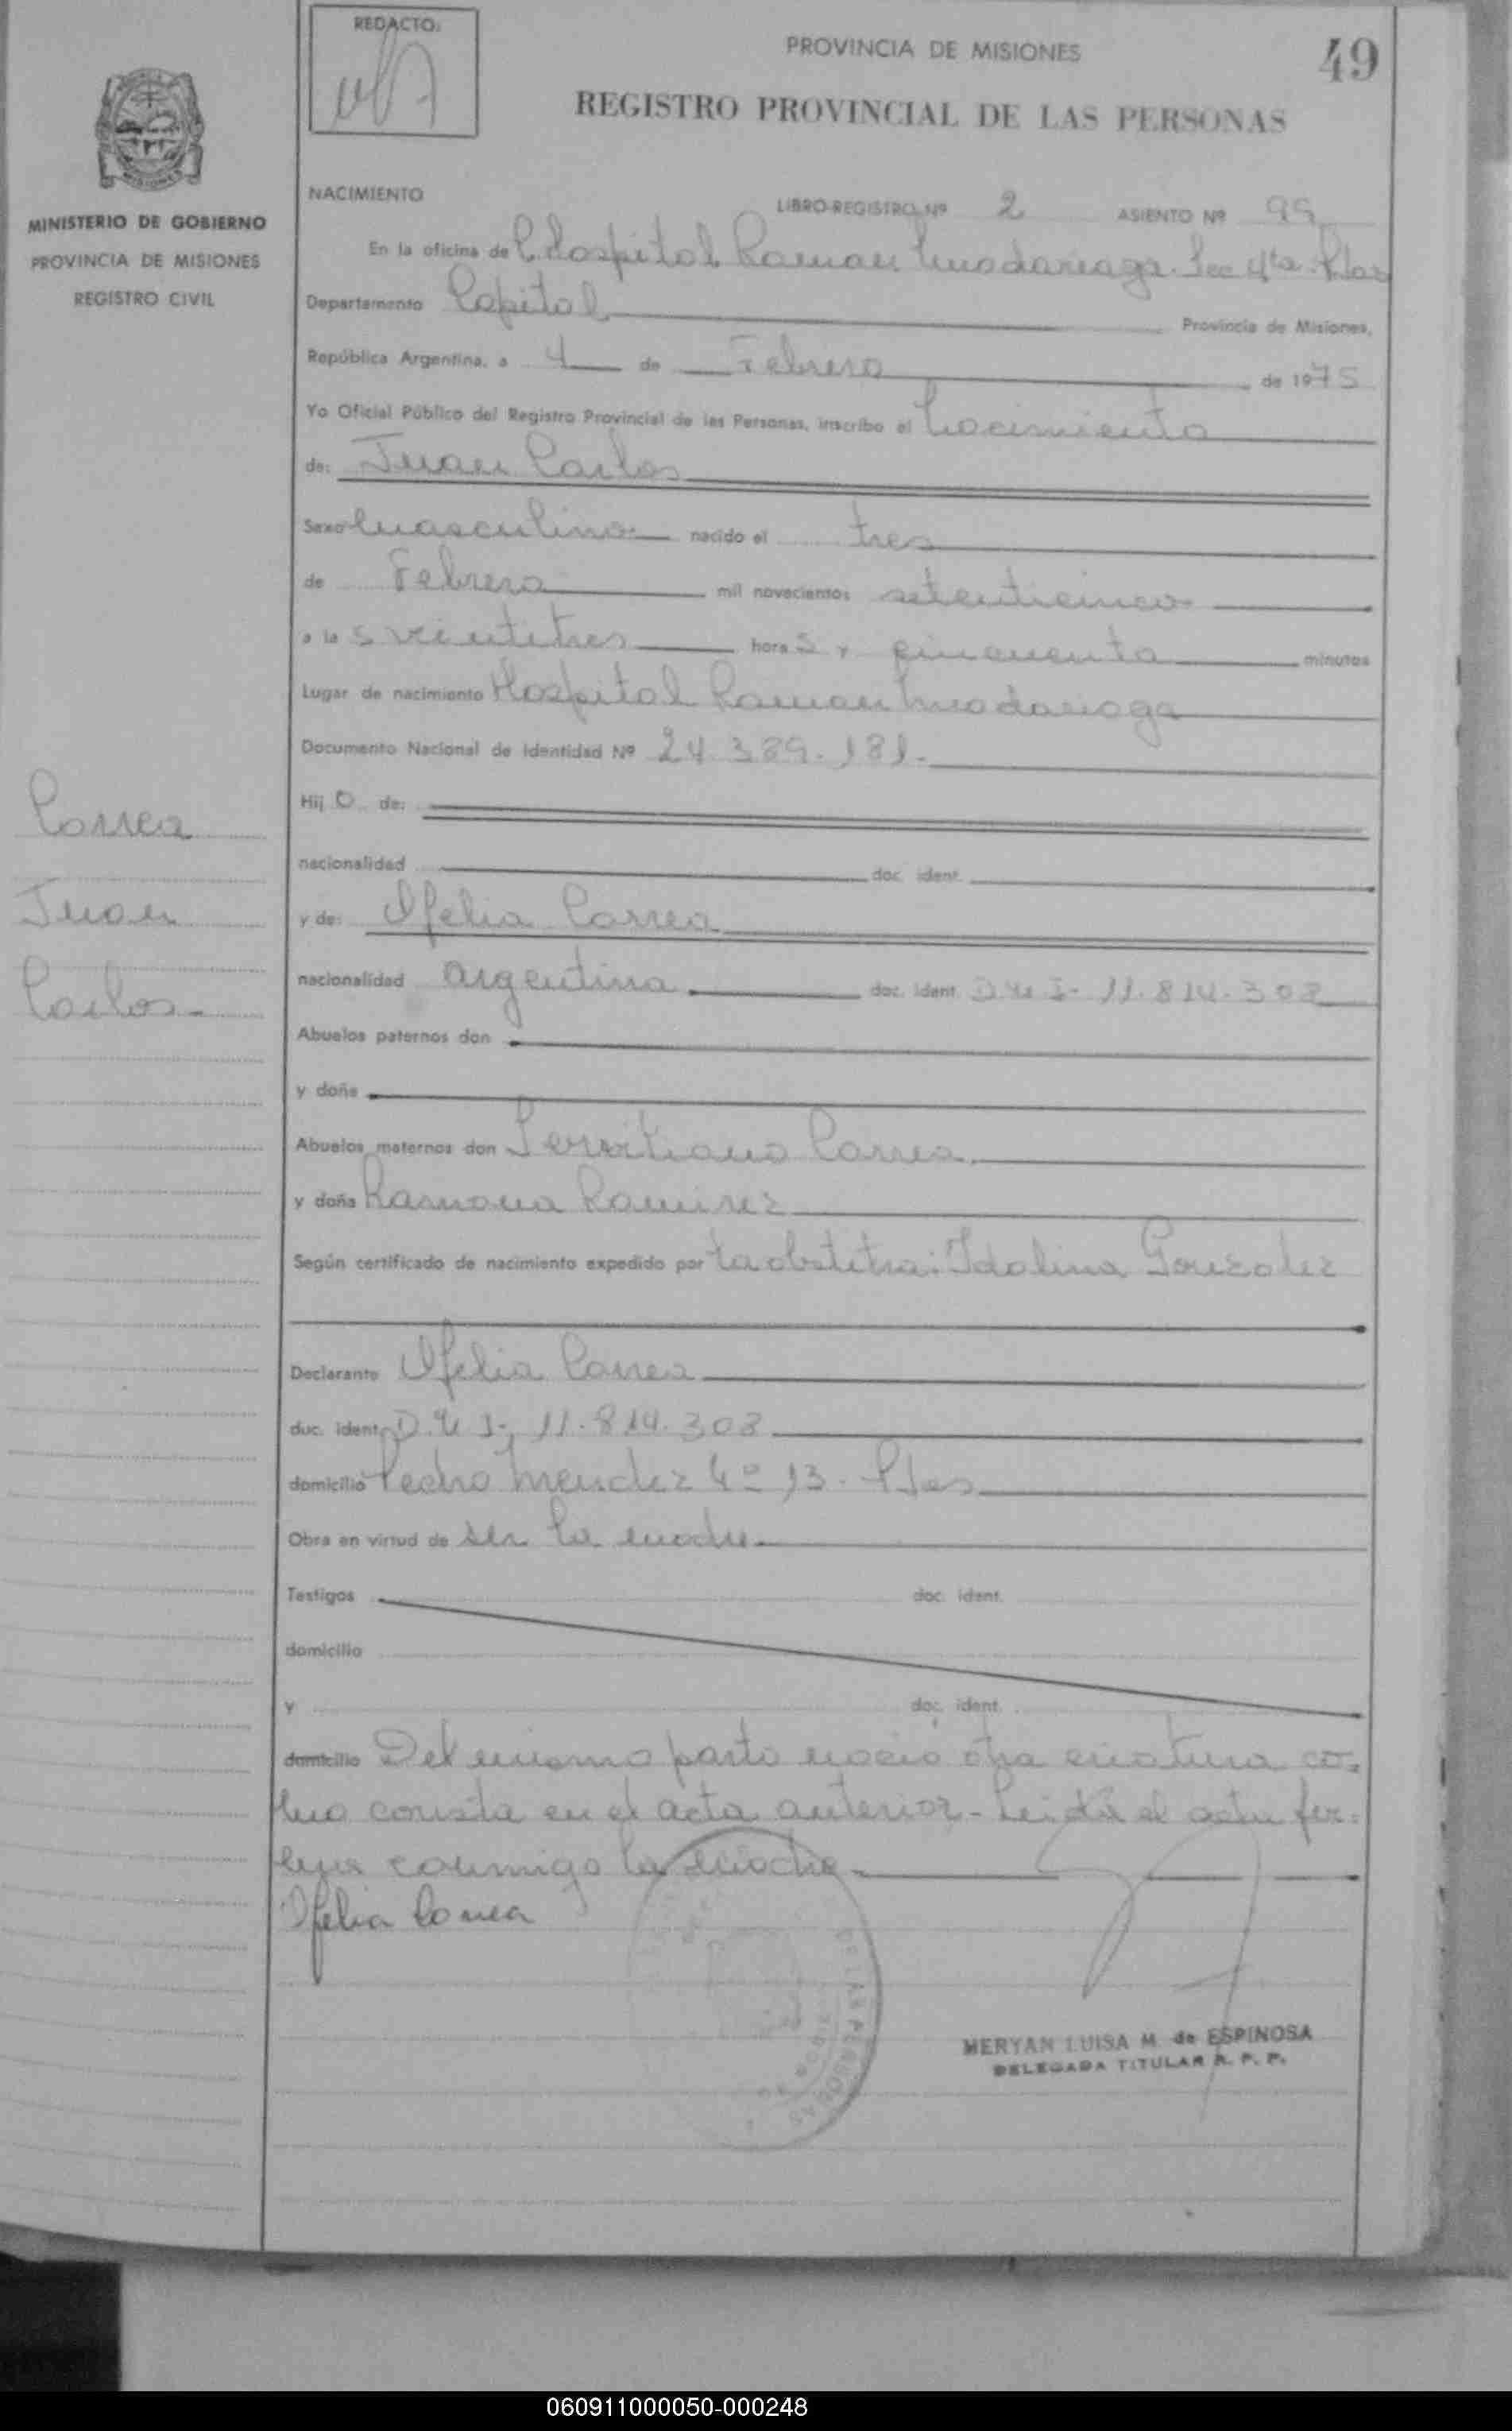 REDACTO:
PROVINCIA DE MISIONES
49
REGISTRO PROVINCIAL DE LAS PERSONAS
MISIONES
MINISTERIO DE GOBIERNO
PROVINCIA DE MISIONES
REGISTRO CIVIL
NACIMIENTO
LIBRO-REGISTRO Nº 2 ASIENTO Nº 99
En la oficina de Hospital Ramon Madariaga. Sec 4ta. Pdas
Departamento Capital Provincia de Misiones,
República Argentina, a 4 de Febrero de 1975
Yo Oficial Público del Registro Provincial de las Personas, inscribo el Nacimiento
de: Juan Carlos
Sexo masculino nacido el tres
de Febrero mil novecientos setenticinco
a la s veintitres hora s y cincuenta minutos
Lugar de nacimiento Hospital Ramon Madariaga
Documento Nacional de Identidad Nº 24.389.181.
Hij o de:
nacionalidad doc. ident.
y de: Ofelia Correa
nacionalidad argentina doc. ident. D.N.I. 11.814.308
Correa
Juan
Carlos.
Abuelos paternos don
y doña
Abuelos maternos don Correa
y doña Ramona Ramirez
Según certificado de nacimiento expedido por la obstetra: Idolina Gonzalez
Declarante Ofelia Correa
duc. ident. D.N.I. 11.814.308
domicilio Pedro Mendez 4º 13. Pdas
Obra en virtud de ser la madre
Testigos doc. ident.
domicilio
y doc. ident.
domicilio Del mismo parto nació otra criatura co-
mo consta en el acta anterior- Leida el acta fir-
ma conmigo la madre
Ofelia Correa
MERYAN LUISA M. de ESPINOSA
DELEGADA TITULAR R. P. P.
060911000050-000248